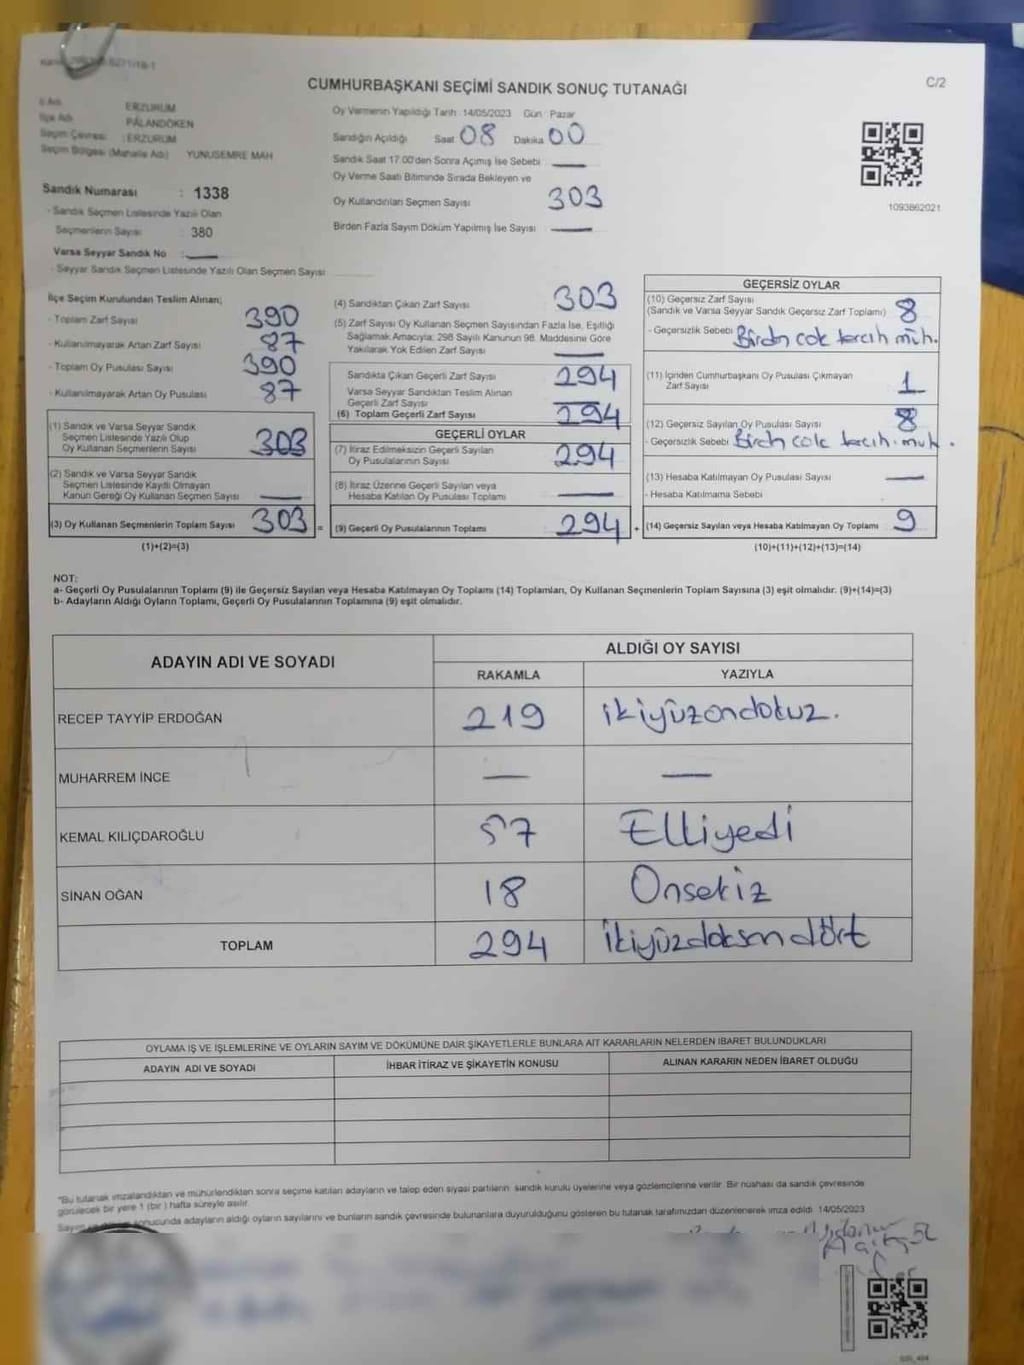 CUMHURBAŞKANI SEÇİMİ SANDIK SONUÇ TUTANAĞI
C/2
ERZURUM
PALANDÖKEN
Seçim Çevresi : ERZURUM
Seçim Bölgesi (Mahalle Adı) YUNUSEMRE MAH
Sandık Numarası : 1338
- Sandık Seçmen Listesinde Yazılı Olan
Seçmenlerin Sayısı : 380
Varsa Seyyar Sandık No :
- Seyyar Sandık Seçmen Listesinde Yazılı Olan Seçmen Sayısı
Oy Vermenin Yapıldığı Tarih : 14/05/2023 Gün : Pazar
Sandığın Açıldığı Saat 08 Dakika 00
Sandık Saat 17.00'den Sonra Açılmış İse Sebebi :
Oy Verme Saati Bitiminde Sırada Bekleyen ve
Oy Kullandırılan Seçmen Sayısı 303
Birden Fazla Sayım Döküm Yapılmış İse Sayısı :
1093862021
İlçe Seçim Kurulundan Teslim Alınan;
- Toplam Zarf Sayısı 390
- Kullanılmayarak Artan Zarf Sayısı 87
- Toplam Oy Pusulası Sayısı 390
- Kullanılmayarak Artan Oy Pusulası 87
(1) Sandık ve Varsa Seyyar Sandık
Seçmen Listesinde Yazılı Olup
Oy Kullanan Seçmenlerin Sayısı 303
(2) Sandık ve Varsa Seyyar Sandık
Seçmen Listesinde Kaydı Olmayan
Kanun Gereği Oy Kullanan Seçmen Sayısı
(3) Oy Kullanan Seçmenlerin Toplam Sayısı 303 =
(1)+(2)=(3)
(4) Sandıktan Çıkan Zarf Sayısı 303
(5) Zarf Sayısı Oy Kullanan Seçmen Sayısından Fazla İse, Eşitliği
Sağlamak Amacıyla; 298 Sayılı Kanunun 98. Maddesine Göre
Yakılarak Yok Edilen Zarf Sayısı
Sandıkta Çıkan Geçerli Zarf Sayısı 294
Varsa Seyyar Sandıktan Teslim Alınan
Geçerli Zarf Sayısı
(6) Toplam Geçerli Zarf Sayısı 294
GEÇERLİ OYLAR
(7) İtiraz Edilmeksizin Geçerli Sayılan
Oy Pusulalarının Sayısı 294
(8) İtiraz Üzerine Geçerli Sayılan veya
Hesaba Katılan Oy Pusulası Toplamı
(9) Geçerli Oy Pusulalarının Toplamı 294 +
GEÇERSİZ OYLAR
(10) Geçersiz Zarf Sayısı
(Sandık ve Varsa Seyyar Sandık Geçersiz Zarf Toplamı) 8
- Geçersizlik Sebebi Birden çok tercih müh.
(11) İçinden Cumhurbaşkanı Oy Pusulası Çıkmayan
Zarf Sayısı 1
(12) Geçersiz Sayılan Oy Pusulası Sayısı 8
- Geçersizlik Sebebi Birden çok tercih müh.
(13) Hesaba Katılmayan Oy Pusulası Sayısı
- Hesaba Katılmama Sebebi
(14) Geçersiz Sayılan veya Hesaba Katılmayan Oy Toplamı 9
(10)+(11)+(12)+(13)=(14)
NOT:
a- Geçerli Oy Pusulalarının Toplamı (9) ile Geçersiz Sayılan veya Hesaba Katılmayan Oy Toplamı (14) Toplamları, Oy Kullanan Seçmenlerin Toplam Sayısına (3) eşit olmalıdır. (9)+(14)=(3)
b- Adayların Aldığı Oyların Toplamı, Geçerli Oy Pusulalarının Toplamına (9) eşit olmalıdır.
ADAYIN ADI VE SOYADI
ALDIĞI OY SAYISI
RAKAMLA YAZIYLA
RECEP TAYYİP ERDOĞAN 219 ikiyüzondokuz.
MUHARREM İNCE
KEMAL KILIÇDAROĞLU 57 Elliyedi
SİNAN OĞAN 18 Onsekiz
TOPLAM 294 ikiyüzdoksandört
OYLAMA İŞ VE İŞLEMLERİNE VE OYLARIN SAYIM VE DÖKÜMÜNE DAİR ŞİKAYETLERLE BUNLARA AİT KARARLARIN NELERDEN İBARET BULUNDUKLARI
ADAYIN ADI VE SOYADI İHBAR İTİRAZ VE ŞİKAYETİN KONUSU ALINAN KARARIN NEDEN İBARET OLDUĞU
"Bu tutanak imzalandıktan ve mühürlendikten sonra seçime katılan adayların ve talep eden siyasi partilerin, sandık kurulu üyelerine veya gözlemcilerine verilir. Bir nüshası da sandık çevresinde
görülecek bir yere 1 (bir) hafta süreyle asılır.
sonucunda adayların aldığı oyların sayılarını ve bunların sandık çevresinde bulunanlara duyurulduğunu gösteren bu tutanak tarafımızdan düzenlenerek imza edildi. 14/05/2023